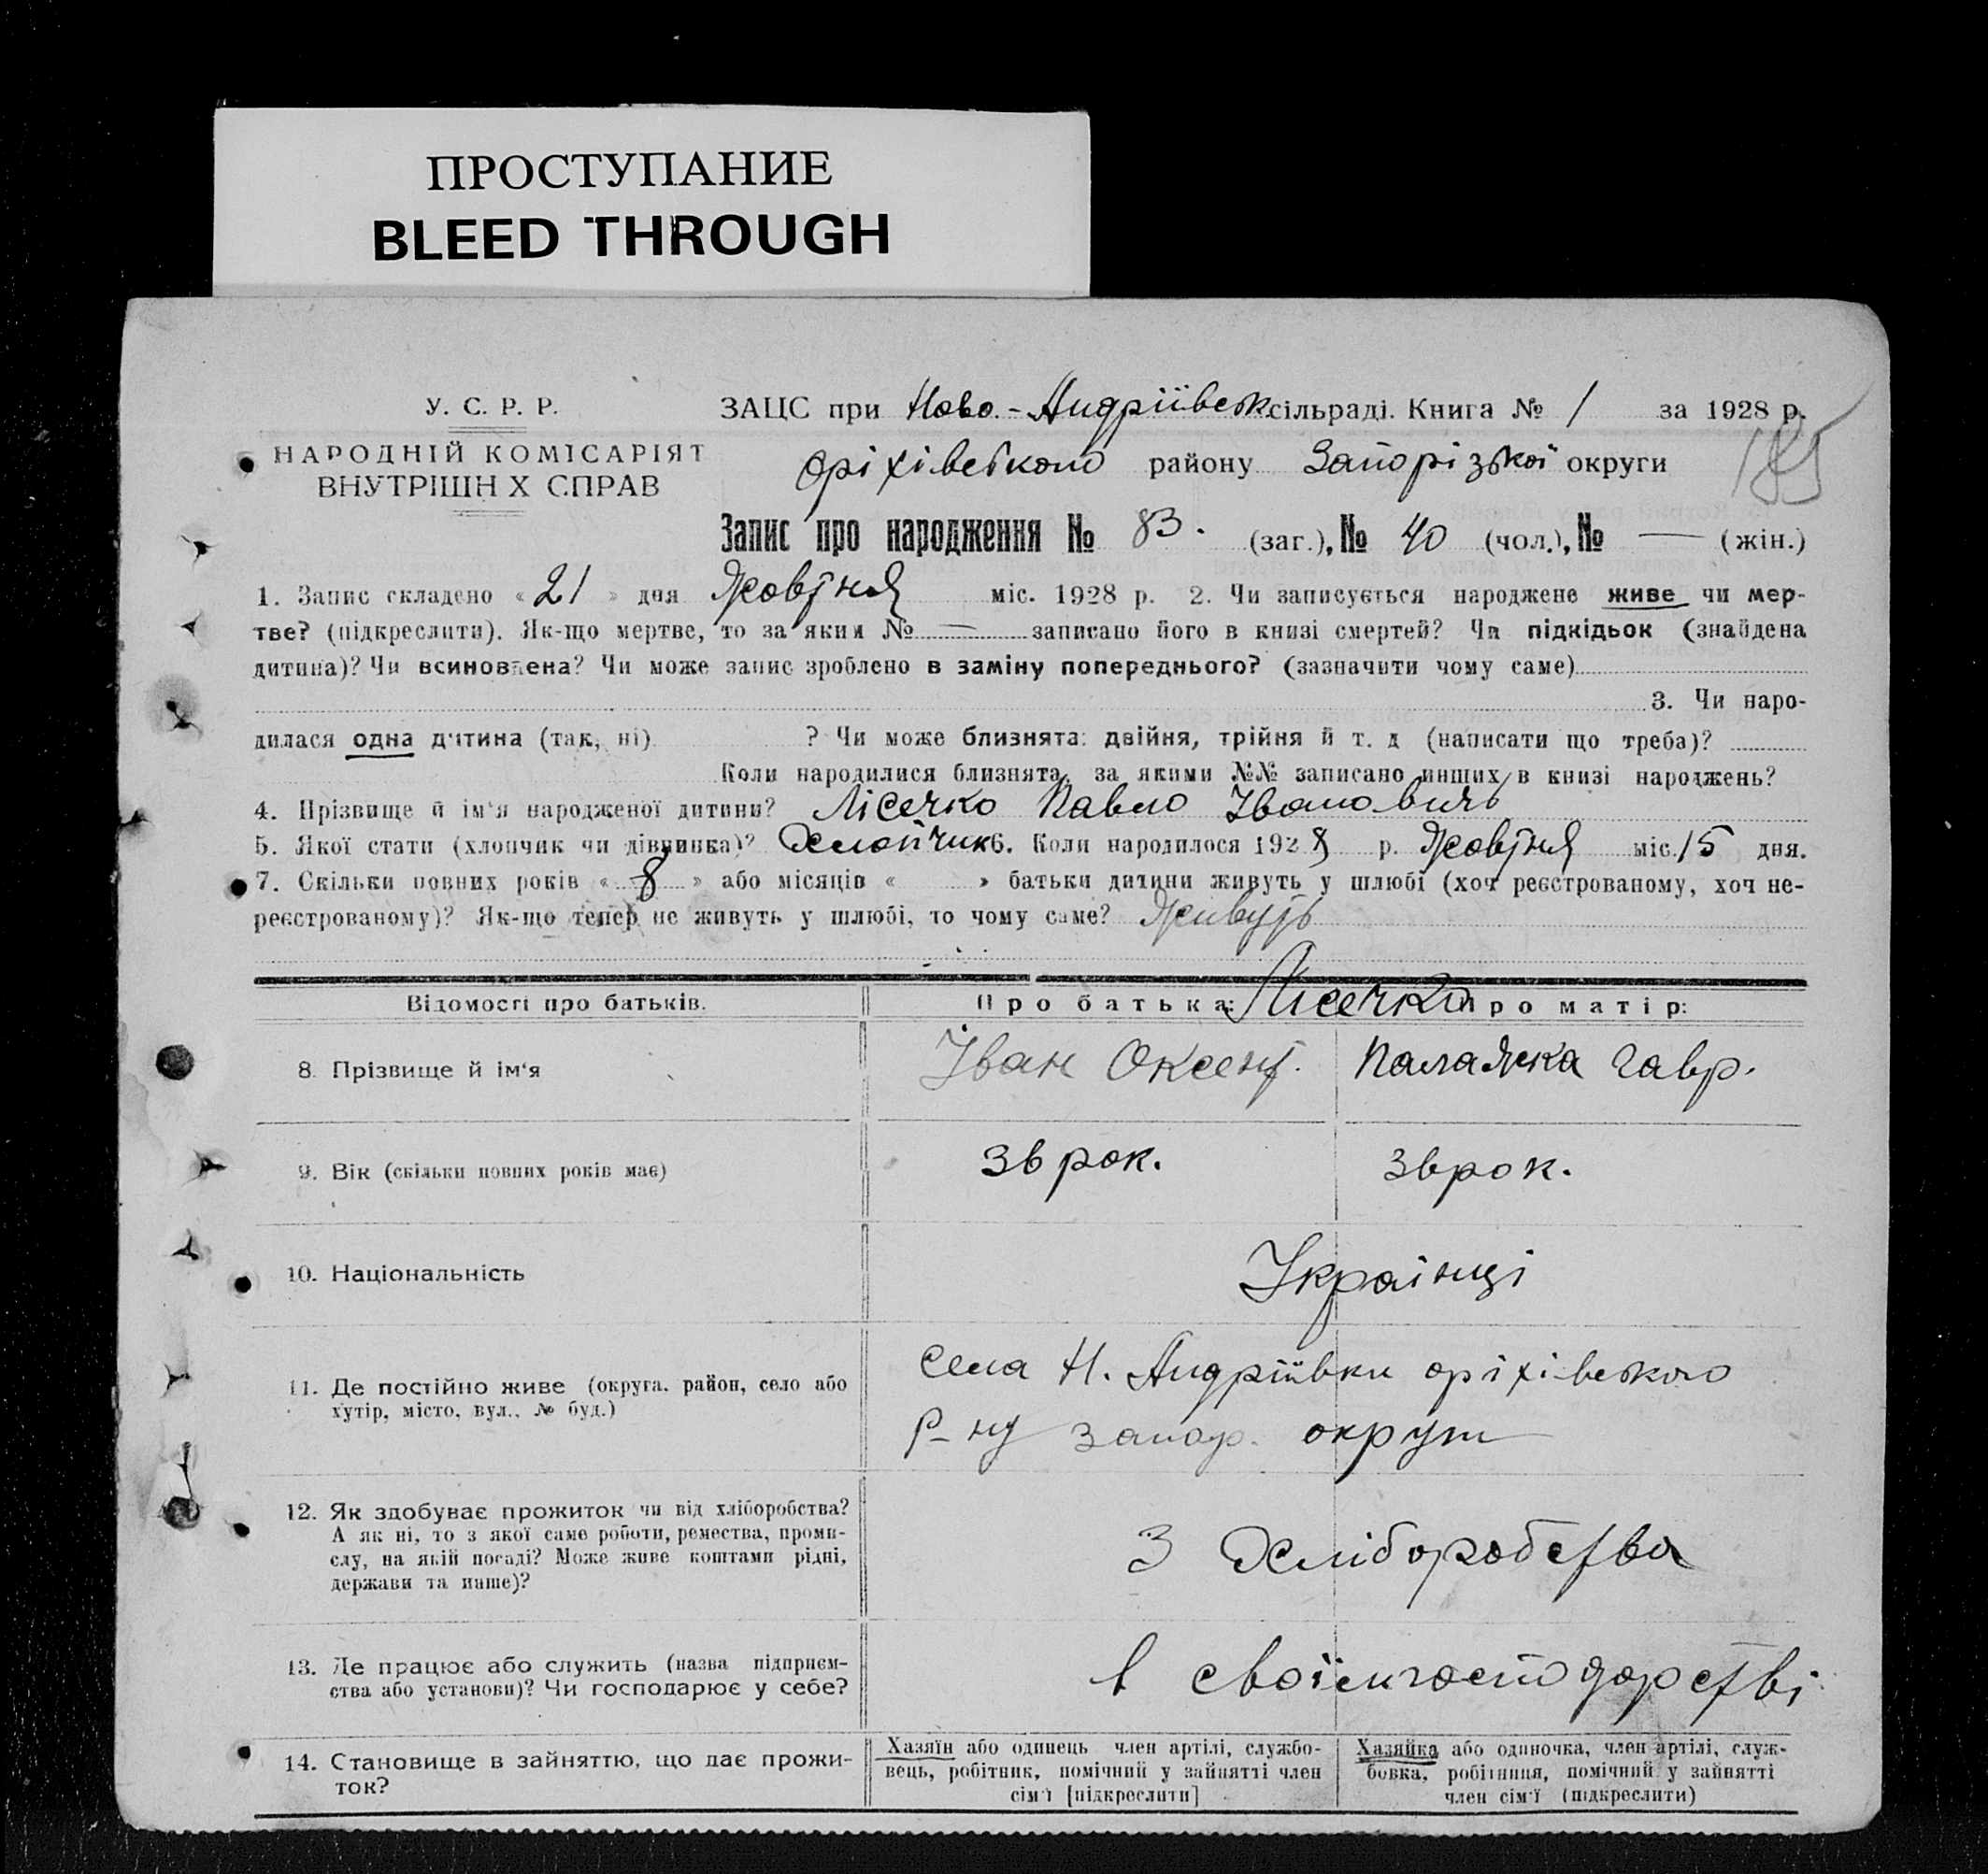 ПРОСТУПАНИЕ
BLEED THROUGH
У. С. Р. Р.
НАРОДНІЙ КОМІСАРІЯТ
ВНУТРІШН Х СПРАВ
ЗАЦС при Ново-Андріївськ. сільраді. Книга № 1 за 1928 р.
Оріхівського району Запорізької округи
185
Запис про народження № 83. (заг.), № 40 (чол.), № — (жін.)
1. Запис складено « 21 » дня Жовтня міс. 1928 р. 2. Чи записується народжене живе чи мер-
тве? (підкреслити). Як-що мертве, то за яким № — записано його в книзі смертей? Чи підкідьок (знайдена
дитина)? Чи всиновлена? Чи може запис зроблено в заміну попереднього? (зазначити чому саме)
3. Чи наро-
дилася одна дитина (так, ні) ? Чи може близнята: двійня, трійня й т. д (написати що треба)?
Коли народилися близнята, за якими №№ записано инших в книзі народжень?
4. Прізвище й ім'я народженої дитини? Лісечко Павло Івановичь
5. Якої стати (хлопчик чи дівчинка)? Хлопчик 6. Коли народилося 1928 р. Жовтня міс. 15 дня.
7. Скільки повних років « 8 » або місяців « » батьки дитини живуть у шлюбі (хоч реєстрованому, хоч не-
реєстрованому)? Як-що тепер не живуть у шлюбі, то чому саме? Живуть
Відомості про батьків. Про батька: Лісечко Про матір:
8. Прізвище й ім'я Іван Оксент. Палажка Гавр.
9. Вік (скільки повних років має) 36 рок. 36 рок.
10. Національність Українці
11. Де постійно живе (округа. район, село або
хутір, місто, вул., № буд.)
Села Н. Андріївки оріхівського
р-ну Запор. округи
12. Як здобуває прожиток чи від хліборобства?
А як ні, то з якої саме роботи, ремества, проми-
слу, на якій посаді? Може живе коштами рідні,
держави та инше)?
З Хліборобства
13. Де працює або служить (назва підприєм-
ства або установи)? Чи господарює у себе?
в своїм господарстві
14. Становище в зайняттю, що дає прожи-
ток?
Хазяїн або одинець член артілі, службо-
вець, робітник, помічний у зайнятті член
сім'ї [підкреслити]
Хазяйка або одиночка, член артілі, служ-
бовка, робітниця, помічний у зайнятті
член сім'ї (підкреслити)